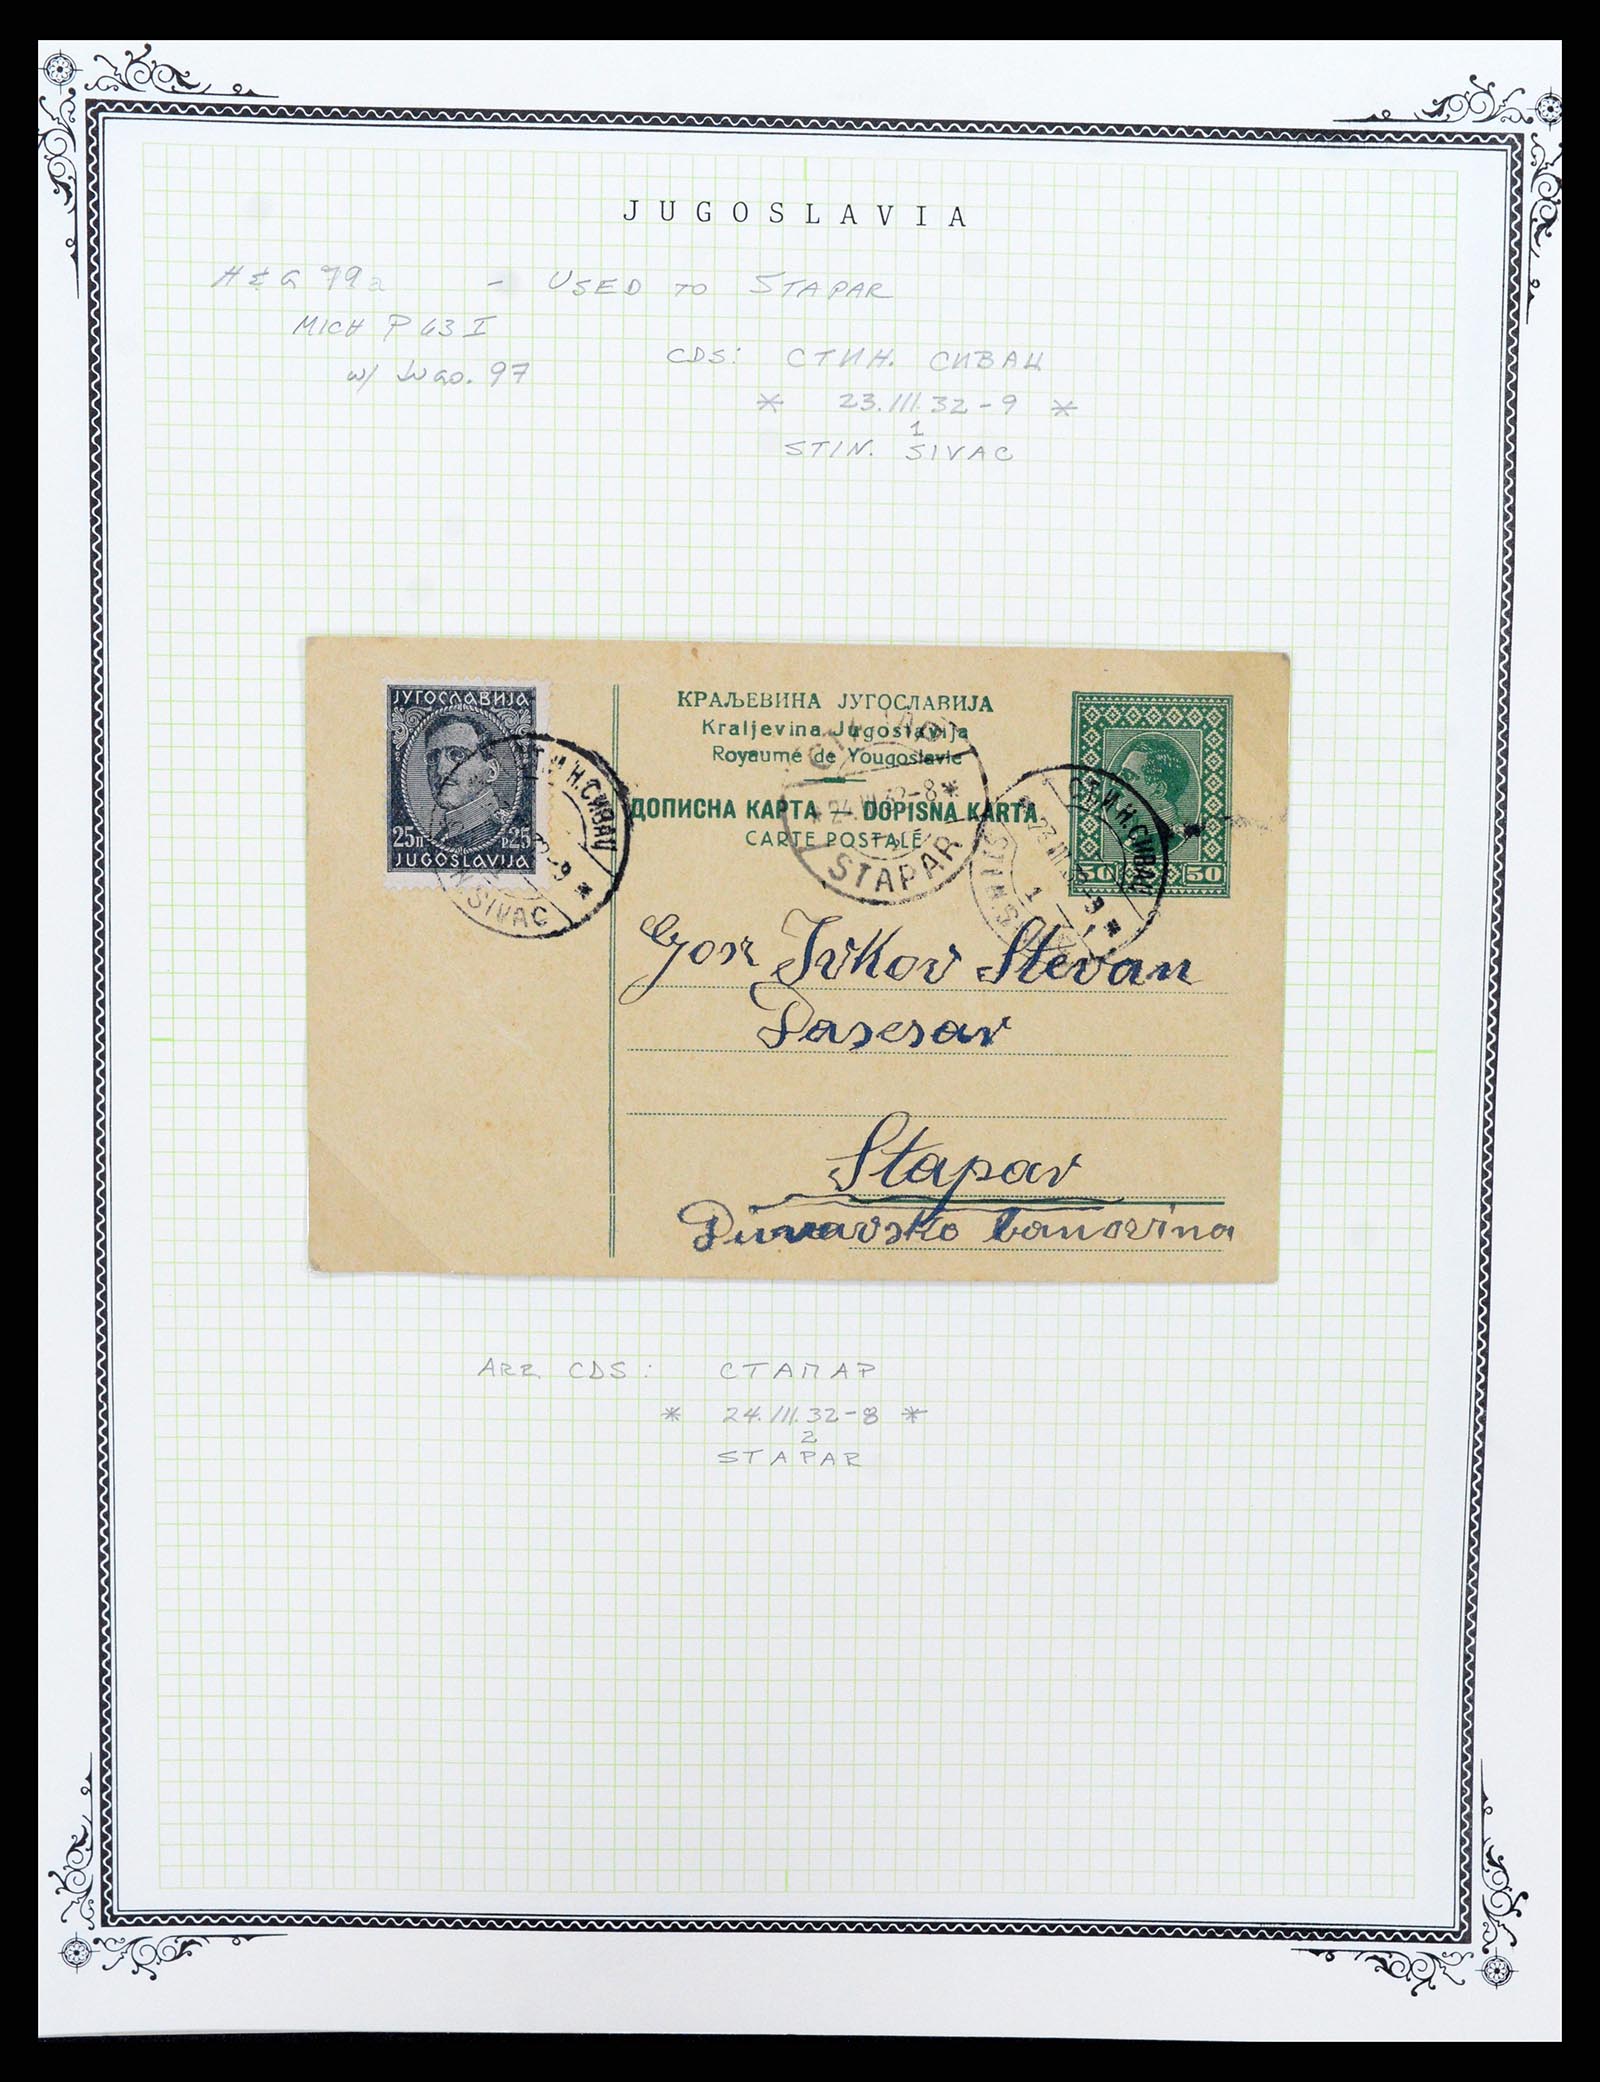 JUGOSLAVIA
H & G 79a - USED TO STAPAR
MICH P 63 I
w/ Jugo. 97
CDS: СТИН. СИВАЦ
* 23.III.32-9 *
1
STIN. SIVAC
ЈУГОСЛАВИЈА
25п P25
JUGOSLAVIJA
Т.И.Н.СИВАЦ
-9 *
N.SIVAC
КРАЉЕВИНА ЈУГОСЛАВИЈА
Kraljevina Jugoslavija
Royaume de Yougoslavie
ДОПИСНА КАРТА — DOPISNA KARTA
CARTE POSTALE
24.III.32-8 *
2
STAPAR
СТ.И.Н.СИВАЦ
23.III.32-9 *
1
50 50
Gosp Ivkov Stevan
Stapar
Dunavska banovina
ARR. CDS: СТАПАР
* 24.III.32-8 *
2
STAPAR